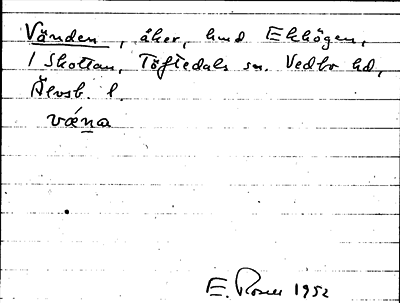 Vänden, åker, hmd Ekhögen,
1 Skottan, Töftedals sn. Vedbo hd,
Älvsb. l.
væna
E. Rosell 1952